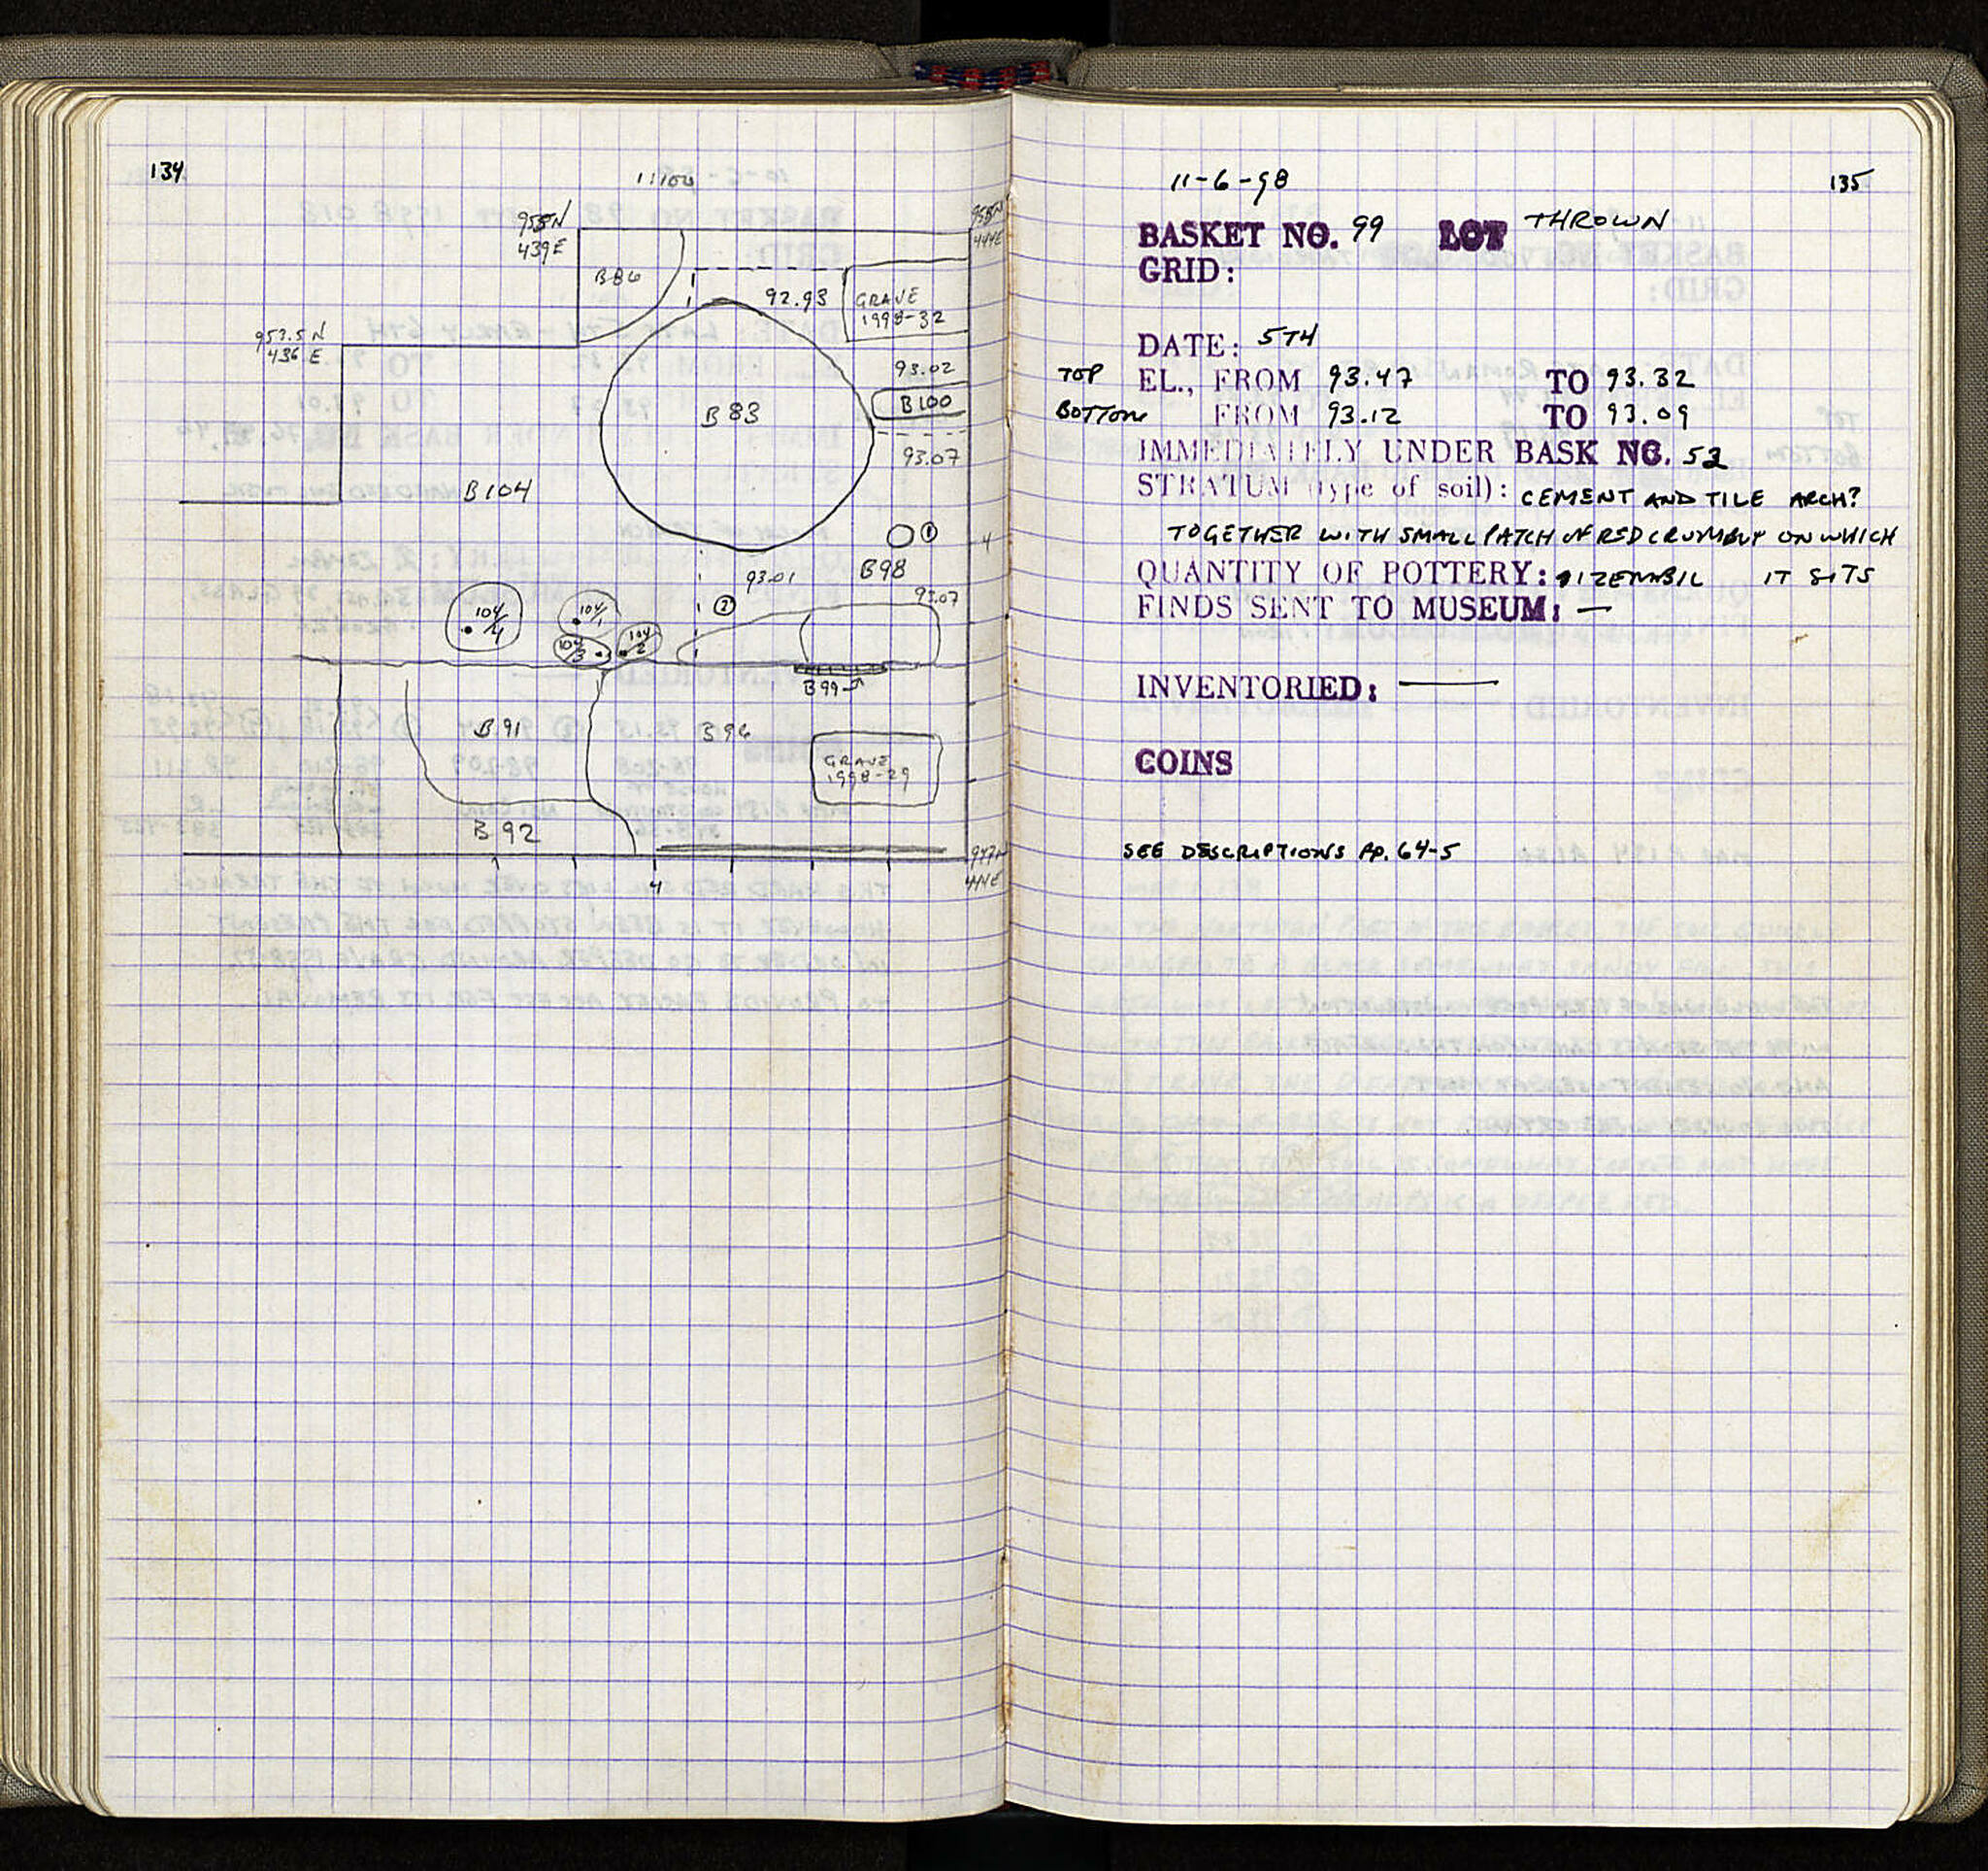 134
1:100
955N
439E
955N
444E
B86
92.93
GRAVE
1998-32
953.5N
436 E
93.02
B83
B100
93.07
B104
①
4
93.01
B98
②
93.07
104/4
104/1
104/3
104/2
B99
B91
B96
GRAVE
1998-29
B92
947N
444E
4
11-6-98
135
BASKET NO. 99 LOT THROWN
GRID:
DATE: 5TH
TOP EL., FROM 93.47 TO 93.32
BOTTOM FROM 93.12 TO 93.09
IMMEDIATELY UNDER BASK NO. 52
STRATUM (type of soil): CEMENT AND TILE ARCH?
TOGETHER WITH SMALL PATCH OF RED CRUMBLY ON WHICH
QUANTITY OF POTTERY: IT SITS
FINDS SENT TO MUSEUM: —
INVENTORIED: —
COINS
SEE DESCRIPTIONS PP. 64-5